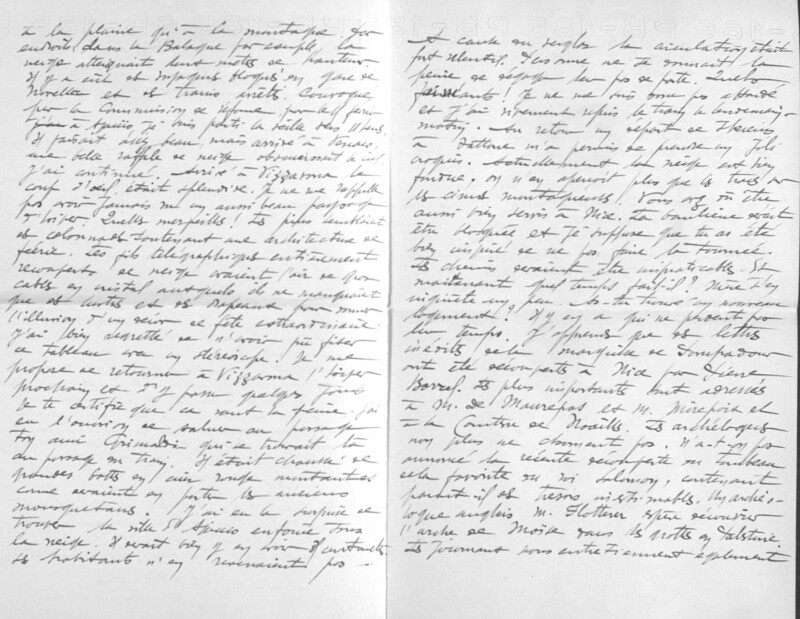 à la plaine qu'à la montagne. Des
endroits, dans la Balagne par exemple, la
neige atteignait deux mètres de hauteur.
Il y a eu des voyageurs bloqués en gare de
Novella et des trains arrêtés. Convoqué
par la Commission de réforme pour le
à Ajaccio je suis parti la veille
Il faisait assez beau, mais arrivé à Venaco,
une belle rafale de neige obscurcissait le ciel.
J'ai continué. Arrivé à Vizzavona le
coup d'oeil était splendide. Je ne me rappelle
pas avoir jamais vu un aussi beau paysage
d'hiver. Quelles merveilles! Les pins semblaient
des colonnades soutenant une architecture de
féerie. Les fils télégraphiques entièrement
recouverts de neige avaient l'air de gros
cables en cristal auxquels il ne manquait
que des lustres et des drapeaux pour donner
l'illusion d'un décor de fête extraordinaire.
J'ai bien regretté de n'avoir pu fixer
ce tableau avec un stéréoscope. Je me
propose de retourner à Vizzavona l'hiver
prochain et d'y passer quelques jours
Je te certifie que ça vaut la peine. J'ai
eu l'occasion de saluer au passage
ton ami Grimaldi qui se trouvait là
au passage du train. Il était chaussé de
grandes bottes en cuir rouge montantes
comme avaient en portés les anciens
mousquetaires. J'ai eu la surprise de
trouver la ville d'Ajaccio enfouie sous
la neige. Il y avait bien y en avoir
les habitants n'en revenaient pas
A cause du verglas la circulation était
fort ralentie. Personne ne se donnait la
peine de dégager leur pas de porte. Quels
fainéants! Je ne me suis donc pas attardé
et j'ai vivement repris le train le lendemain
matin. Au retour un report de
à Tattone m'a permis de prendre un joli
croquis. Actuellement la neige est bien
fondue, on n'en aperçoit plus que les traces sur
les cimes montagneuses. Vous avez dû être
aussi bien servis à Nice. La banlieue devait
être bloquée et je suppose que tu as été
bien inspiré de ne pas faire la tournée.
Les chemins devaient être impraticables. Et
maintenant quel temps fait-il? Mère s'en
inquiète un peu. As-tu trouvé un nouveau
logement? Il y en a qui ne perdent pas
leur temps. J'apprends que des lettres
inédites de la marquise de Pompadour
ont été découvertes à Nice par Pierre
Borel. Les plus importantes sont adressées
à M. de Maurepas et M. Mirepoix et
à la Comtesse de Noailles. Les archéologues
non plus ne chôment pas. N'a-t-on pas
annoncé la récente découverte du tombeau
de la favorite du roi Salomon, contenant
paraît-il des trésors inestimables. Un archéo-
logue anglais M. Flotterer espère découvrir
l'arche de Moïse dans les grottes en Palestine
Les journaux nous entretiennent également